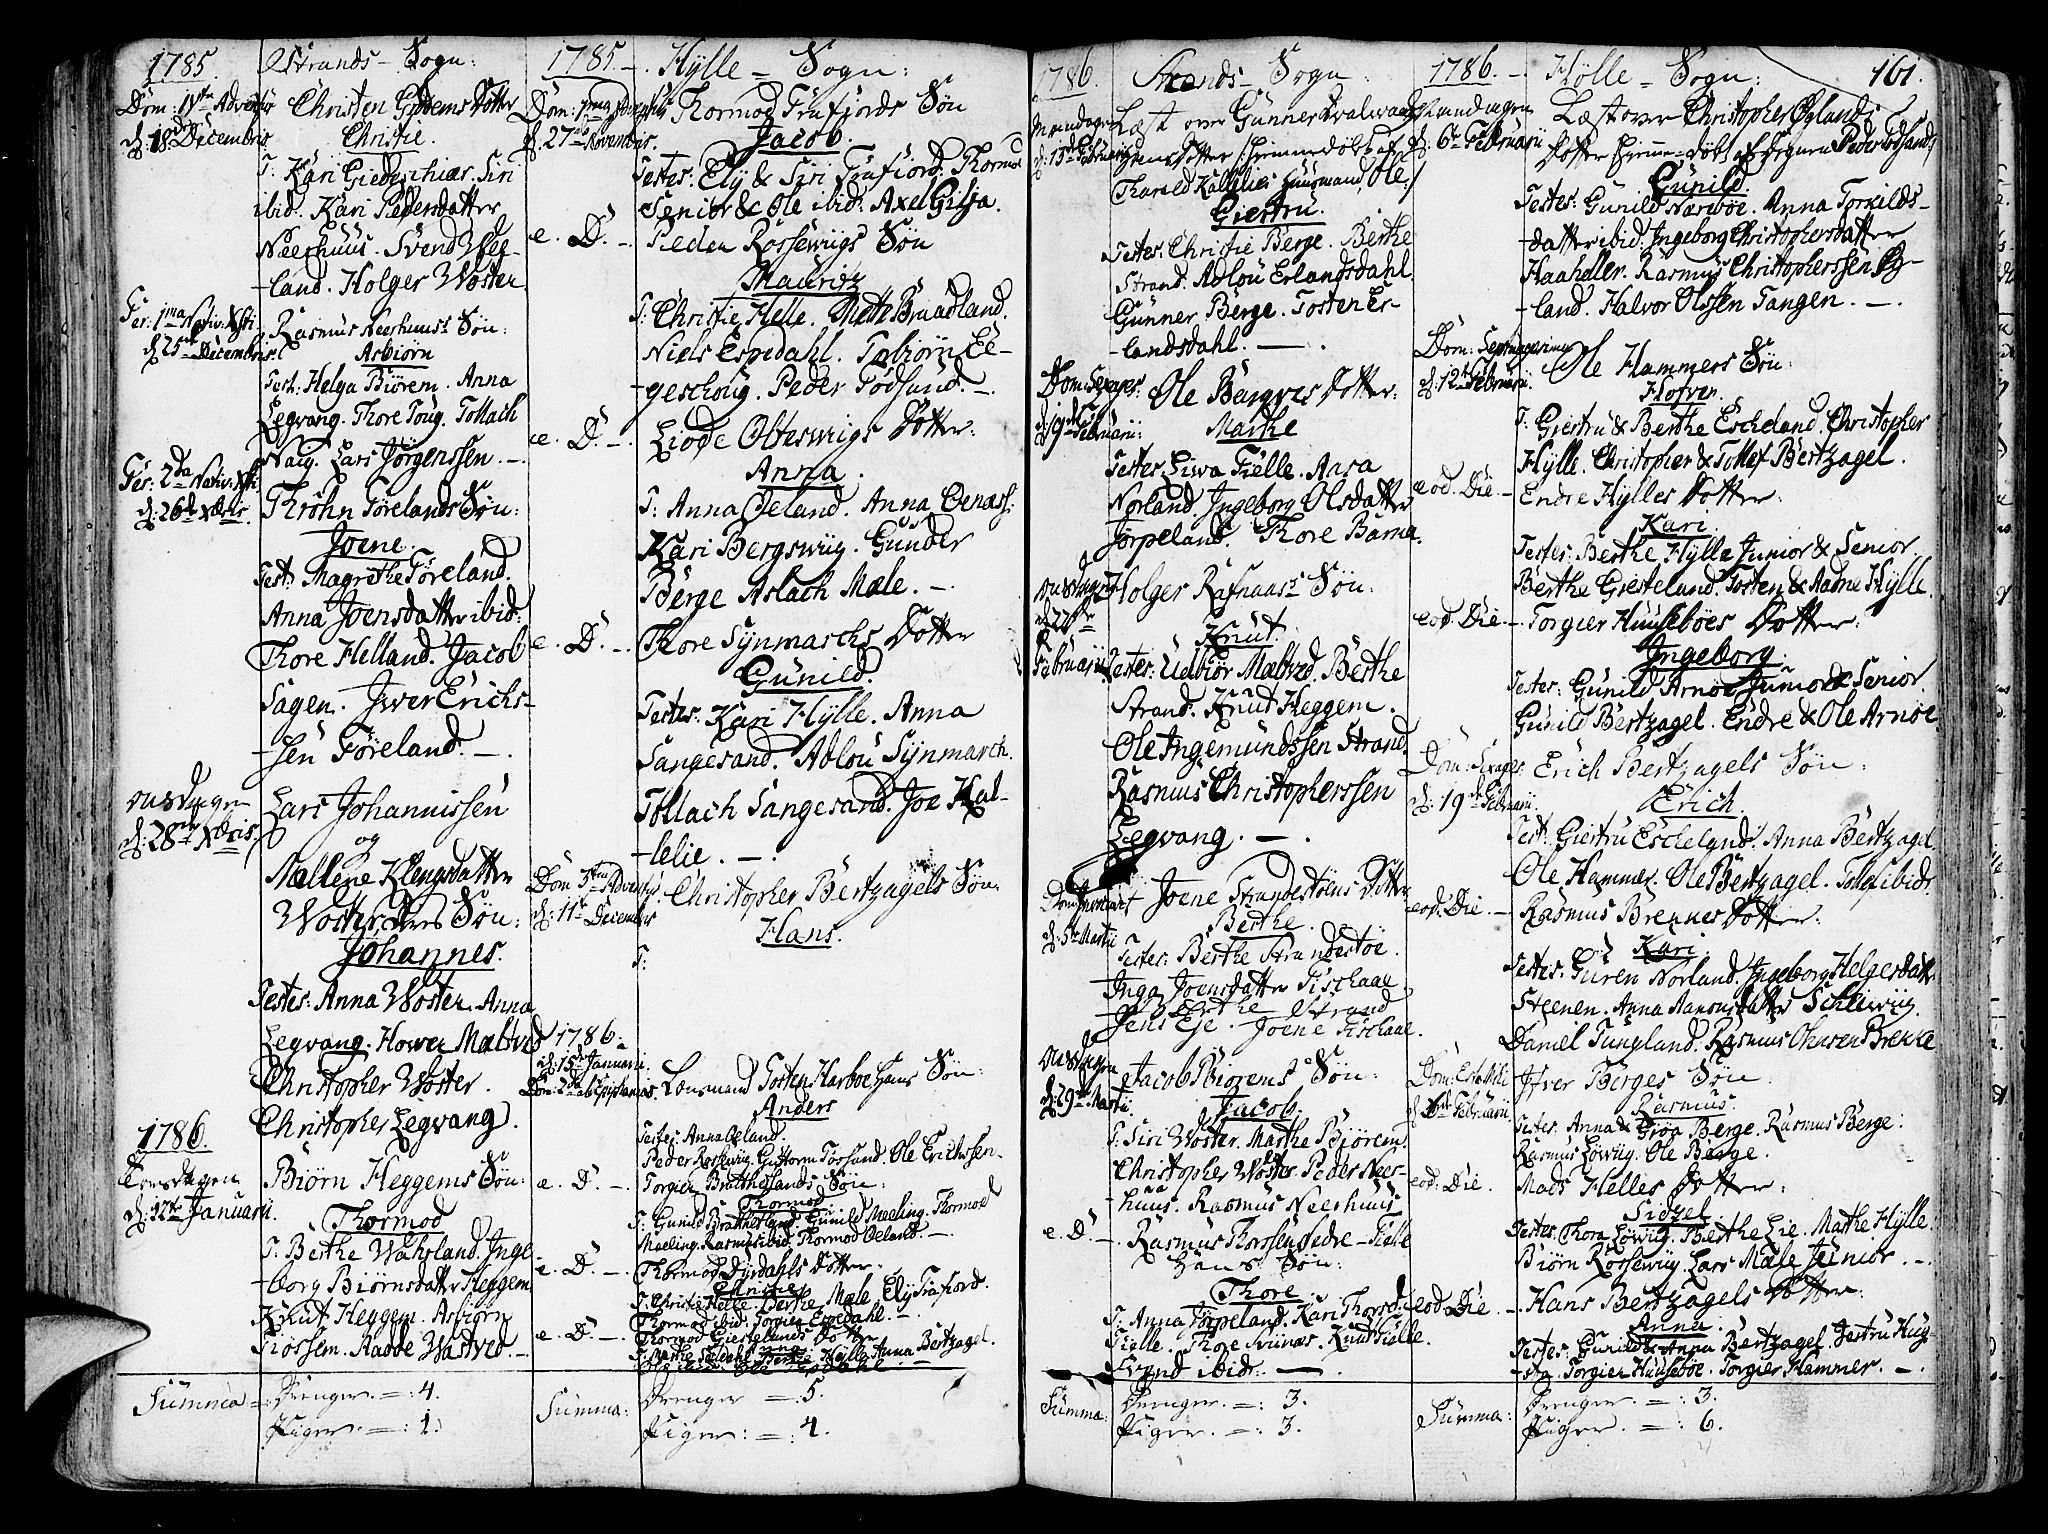 1785.
Strands - Sogn:
Dom: IVta Advent
d: 18de Decembris
Christen Giedems Dotter
Christie.
T: Kari Giedeschier. Siri
ibid. Kari Pedersdatter
Neerhuus. Svend Wee-
land. Holger Woster
Fer: 1ma Nativ: Xsti
d: 25de Decembris.
Rasmus Neerhuus's Søn:
Asbiørn
Test: Helga Biørem. Anna
Legvang. Thore Toug. Tollach
Naig. Lars Jörgenssen. -
Fer: 2da Nativ: Xsti
d: 26de Xbris
Thröhn Törelands Søn:
Joene.
Test: Magrethe Föreland.
Anna Joensdatter ibid:
Thore Helland. Jacob
Sagen. Jwer Erichs-
-sen Föreland. -
Onsdagen
d: 28de Xbris.
Lars Johannissen
og
Mallene Klengsdatter
Woster, deres Søn:
Johannes.
Testes: Anna Woster. Anna
Legvang. Hower Mæltved
Christopher Woster.
Christopher Legvang.
1786.
Torsdagen
d: 12te Januarii.
Biørn Heggems Søn:
Thormod
T: Berthe Wahsland. Inge-
-borg Biørnsdatter Heggem
Knut Heggem. Asbiørn
Tiössem. Radde Wastved. -
Summa -
Drenger. =: 4.
Piger. =: 1.
1785. -
Hylle = Sogn:
Dom: 1ma Adventus
d: 27de Novembris.
Thormod Träfjords Søn
Jacob.
Testes: Ely & Siri Trafiord. Thormod
Senior & Ole ibid: Axel Gilja.
e. D. -
Peder Rossewiigs Søn
Mauritz
T: Christie Helle. Mette Braadland.
Niels Espedahl. Torbiørn Ee-
-geschoug. Peder Todsund. -
e. D. -
Liode Olteswigs Dotter:
Anna.
T: Anna Oeland. Anna Oenæss:
Kari Bergswiig. Gunder
Berge Aslach Mæle. -
e. D. -
Thore Synmarchs Dotter
Gunild.
Testes: Kari Hylle. Anna
Sangesand. Adlou Synmarch.
Tollach Sangesand. Joe Kal-
-lelie. -
Dom: 3tia Adventus
d: 11te December
Christopher Bertzagels Søn:
Hans.
T:
1786.
d: 15de Januarii.
Dom: 2da ab Epiphanias.
Lensmand Tosten Harboe Hans Søn:
Anders
Testes: Anna Oeland.
Peder Rossewiig. Guttorm Tossand. Ole Erichssen.
e. D. -
Torgier Bratthetlands Søn:
Thormod
T: Gunild Bratthetland. Gunild Mæling. Thormod
Mæling. Rasmus ibid. Thormod Oeland. -
e. D. -
Thormod Dyrdahls Dotter:
Christie
T: Christie Helle. Berthe Mæle. Ely Trafiord.
Thormod ibid. Torgier Espedahl. -
e. D. -
Thormod Giestelands Dotter
Anna
T: Marthe Seldahl. Berthe Hylle. Anna Bertzagel.
Summa:
Drenger =: 5.
Piger: =: 4.
1786.
Strands - Sogn:
Mandagen
d: 13de Februarii
Læst over Gunner Qvalwaags
Hans Dotter /: hiemmedöbt af
Tharald Kallelies Huusmand Ole:/
Giertru.
Testes: Christie Berge. Berthe
Strand. Adlou Erlandsdahl
Gunner Berge. Tosten Er-
-landsdahl. -
Dom: Sexages:
d: 19de Februarii:
Ole Bargres Dotter:
Marthe
Testes: Liwa Fielle. Anna
Norland. Ingeborg Olsdatter
Jörpeland. Thore Barka.
Onsdagen
d: 22de
Februarii
Holger Rafnaas's Søn:
Knut.
Testes: Udbiør Mæltved. Berthe
Strand. Knud Heggem.
Ole Ingemundssen Strand.
Rasmus Christopherssen
Legvang. -
Dom: Invocavit
d: 5te Martii
Joene Strandestöens Dotter
Berthe.
Testes: Berthe Strandestöe.
Inga Joensdatter Fischaae.
Berthe Strand
Jens Eje. Joene Fischaae.
Onsdagen
d: 29de Martii.
Jacob Biørems Søn:
Jacob.
T: Siri Woster. Marthe Biørem.
Christopher Woster. Peder Neer-
huus. Rasmus Neerhuus
e. D. -
Rasmus Thorssen Nedre-Tielle
Hans Søn:
Thore
T: Anna Jörpeland. Kari Thorsd:
Tielle. Thore Svinæs. Knud Tielle.
Svend ibid: -
Summa:
Drenger. =: 3.
Piger. =: 3.
1786. -
Hölle - Sogn:
161.
Mandagen
d: 6te Februarii
Læst over Christopher Öylands
Dotter hjemme-döbt af Degnen Peder Todsand:
Gunild.
Testes: Gunild Næsböe. Anna Torkilds-
-datter ibid. Ingeborg Christophersdatter
Haaheller. Rasmus Christopherssen Öy-
land. Halvor Olssen Tangen. -
Dom: Septuagesima
d: 12te Februarii.
Ole Hammers Søn:
Hofver.
T: Giertru & Berthe Escheland. Christopher
Hylle. Christopher & Tollef Bertzagel.
eod. Die -
Endre Hylles Dotter:
Kari.
Testes: Berthe Hylle Junior & Senior
Berthe Giesteland. Tosten & Madne Hylle.
eod. Die -
Torgier Huuseböes Dotter:
Ingeborg.
Testes: Gunild Arnöe Junior & Senior.
Gunild Bertzagel. Endre & Ole Arnöe.
Dom: Sexages:
d: 19de Februarii.
Erich Bertzagels Søn:
Erich.
Test: Giertru Escheland. Anna Bertzagel.
Ole Hammer. Ole Bertzagel. Tollef ibid:
eod. Die. -
Rasmus Brekkes Dotter:
Kari
Testes: Guren Norland. Ingeborg Helgesdatter
Steenen. Anna Hansdatter Schleiwiig
Daniel Tungland. Rasmus Brekke
Dom: Esto Mihi
d: 26de Februarii
Ifver Berges Søn:
Rasmus.
Testes: Anna & Gioa Berge. Rasmus Berge:
Rasmus Löwiig. Ole Berge.
eod: Die.
Mads Helles Dotter:
Sidzel.
Testes: Thora Löwiig. Berthe Lie. Marthe Hylle.
Biørn Rossewiig. Lars Mæle Junior. -
eod: Die. -
Hans Bertzagels Dotter:
Anna.
Testes: Gunild & Anna Bertzagel. Jertru Hug-
-sta. Torgier Huuseböe. Torgier Hammer. -
Summa:
Drenger. =: 3.
Piger. =: 6.